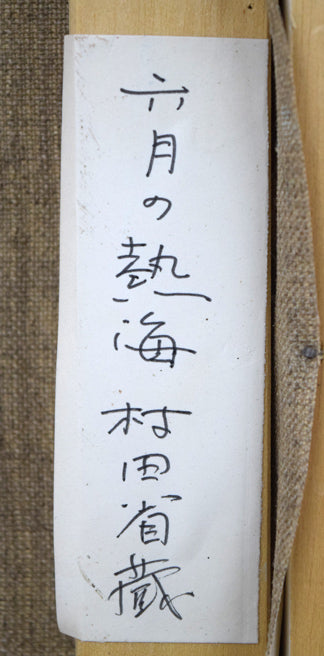 六月の熱海 村田省蔵